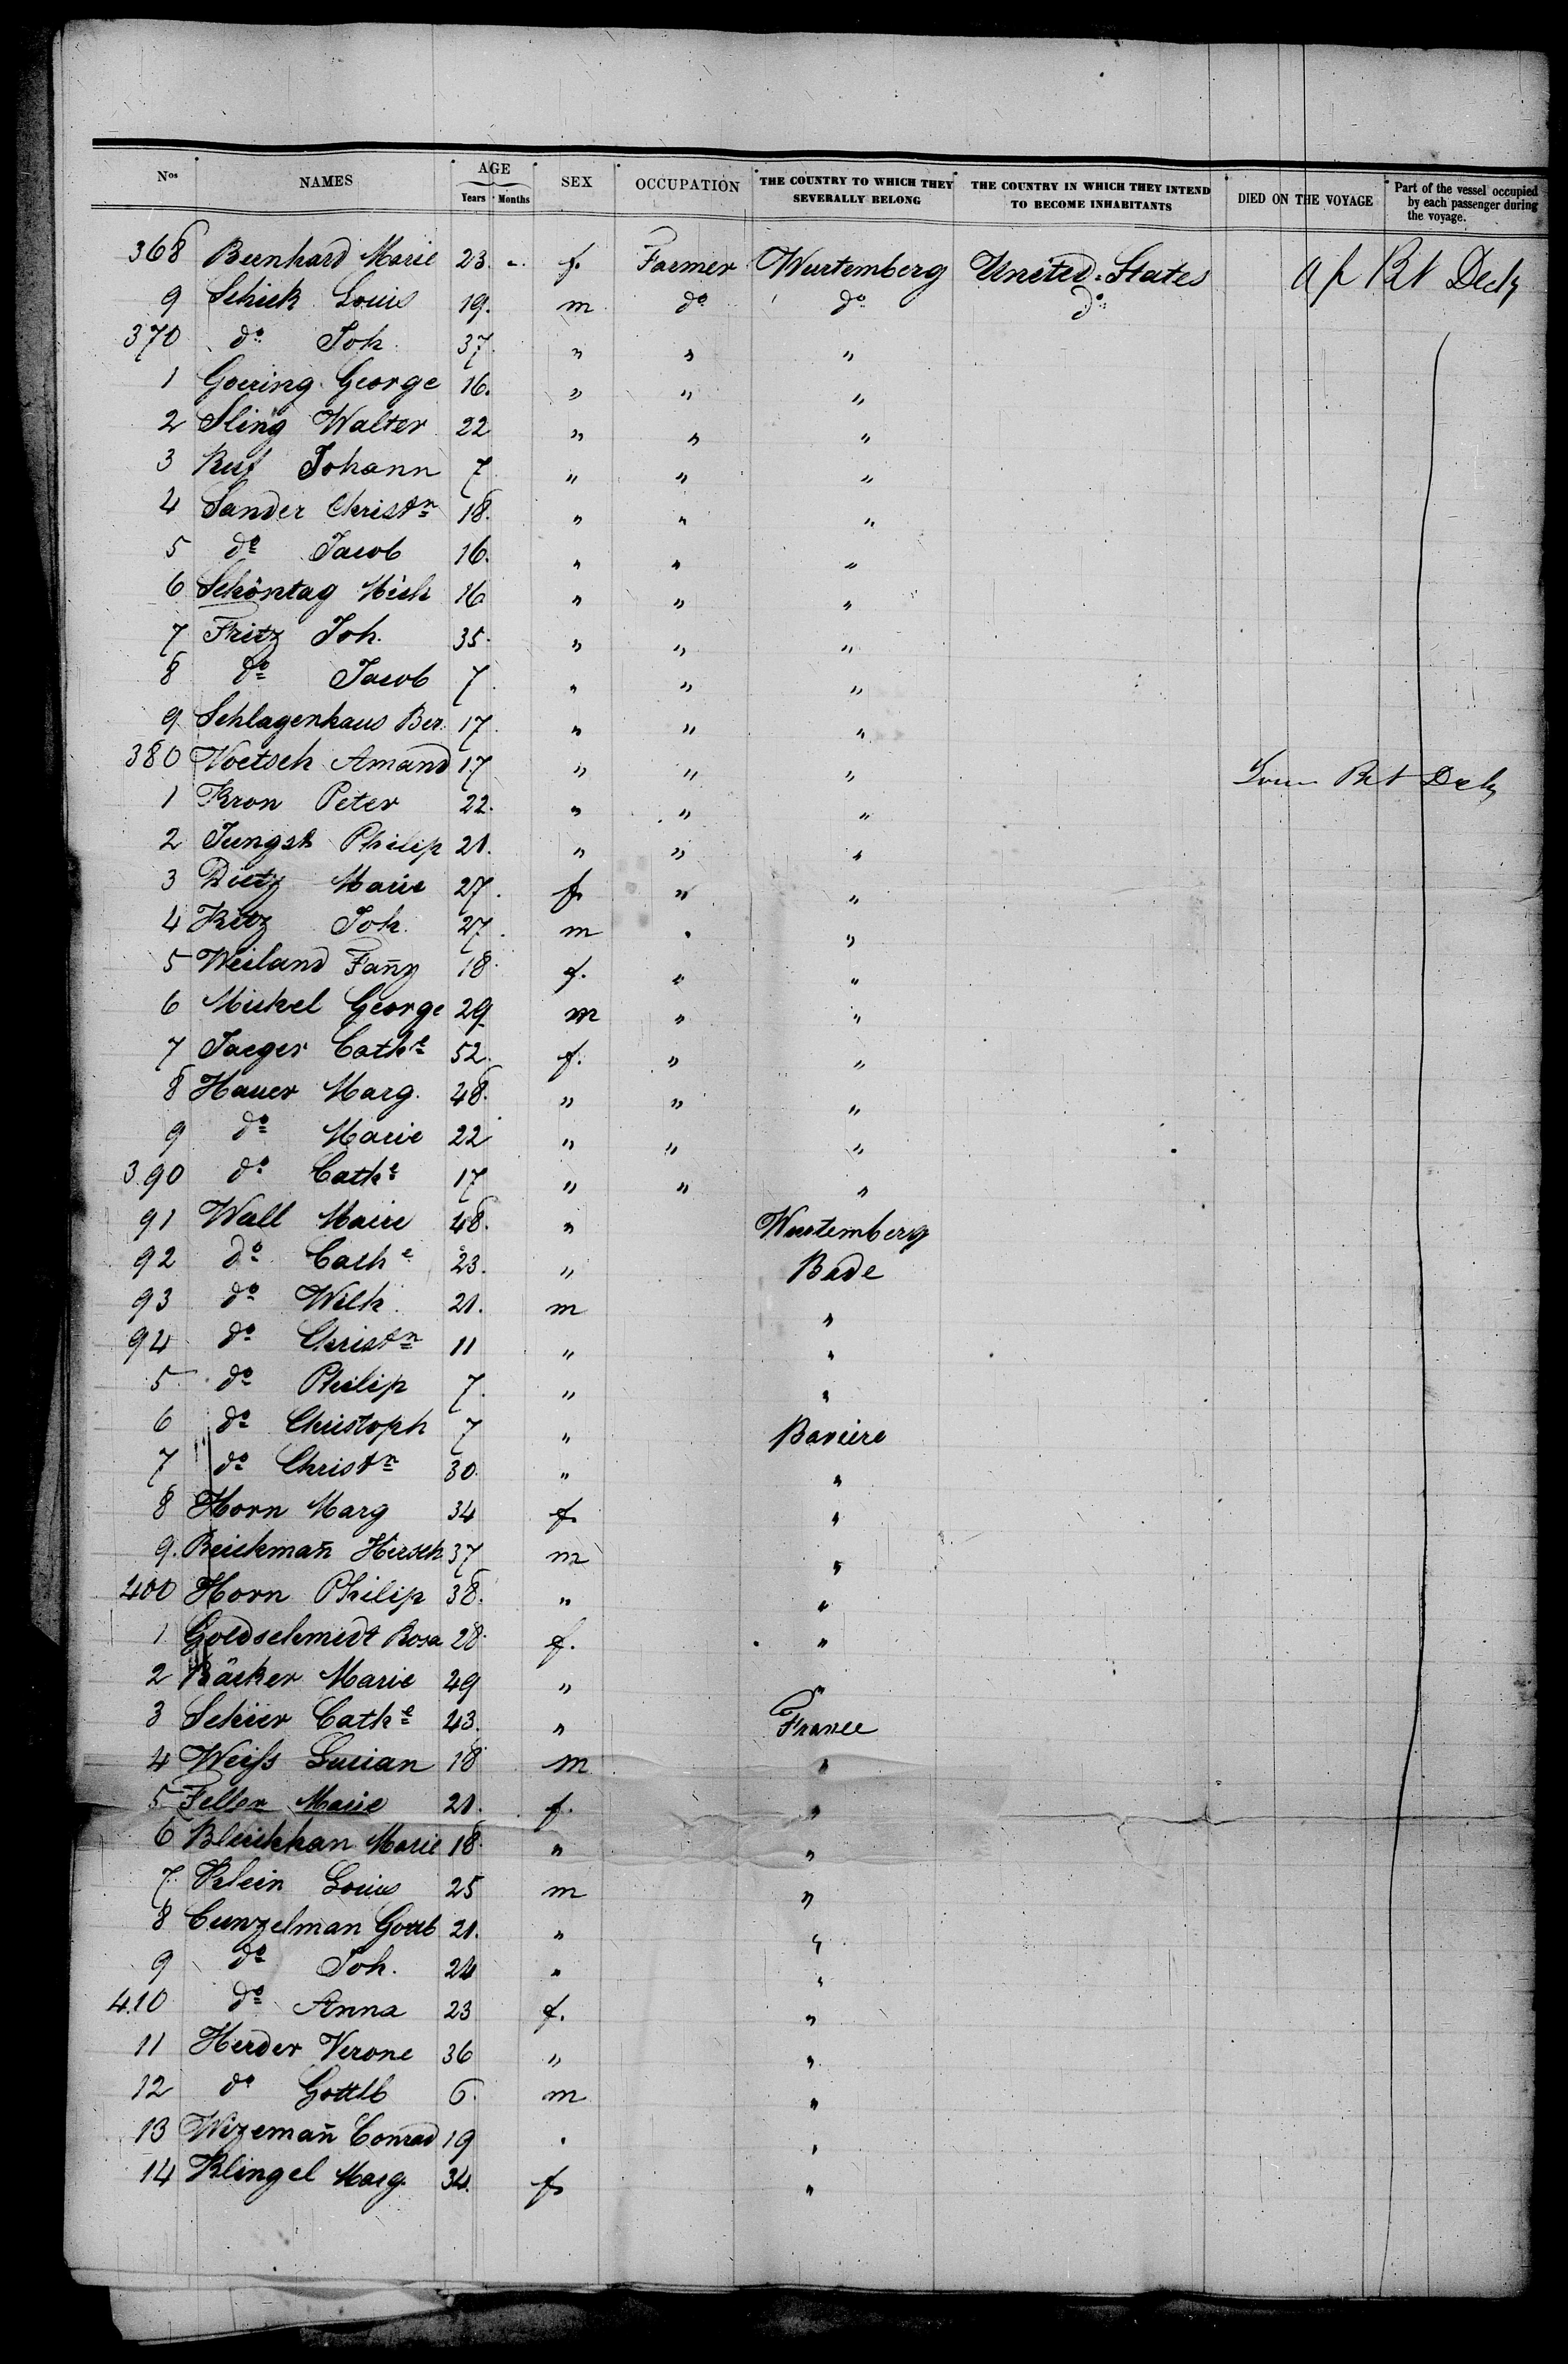 Nos NAMES AGE Years Months SEX OCCUPATION THE COUNTRY TO WHICH THEY SEVERALLY BELONG THE COUNTRY IN WHICH THEY INTEND TO BECOME INHABITANTS DIED ON THE VOYAGE Part of the vessel occupied by each passenger during the voyage.
368 Bernhard Marie 23 " f. Farmer Wurtemberg United-States Bt Deck
9 Schick Louis 19. m do do do
370 do Joh. 37. " " "
1 Goering George 16. " " "
2 Sling Walter 22 " " "
3 Ruf Johann 7 " " "
4 Sander Christn 18. " " "
5 do Jacob 16. " " "
6 Schöntag Mich 16 " " "
7 Fritz Joh. 35. " " "
8 do Jacob 7. " " "
9 Schlagenhaus Ber. 17. " " "
380 Voetsch Amand 17 " " " Bet Deck
1 Kron Peter 22. " " "
2 Jungsk Philip 21. " " "
3 Dietz Marie 27. f. " "
4 Kitz Joh. 27. m " "
5 Weiland Fan̄y 18. f. " "
6 Mickel George 29 m " "
7 Jaeger Cathe 52. f. " "
8 Hauer Marg. 48. " " "
9 do Marie 22 " " "
390 do Cathe 17 " " "
91 Wall Marie 48. " Wurtemberg
92 do Cathe 23. " Bade
93 do Wilh. 21. m "
94 do Christn 11 " "
5 do Philip 7. " "
6 do Christoph 7 " Baviere
7 do Christn 30. " "
8 Horn Marg 34 f. "
9. Beickman̄ Hirsch 37 m "
400 Horn Philip 38. " "
1 Goldschmidt Rosa 28. f. "
2 Bäcker Marie 49 " "
3 Schier Cathe 43. " France
4 Weiss Lucian 18 m "
5 Feller Marie 21. f. "
6 Bleickhan Marie 18. " "
7 Klein Louis 25 m "
8 Cunzelman Gottb 21. " "
9 do Joh. 24 " "
410 do Anna 23 f. "
11 Herder Verone 36 " "
12 do Gottlb 6. m "
13 Wizeman̄ Conrad 19 " "
14 Klingel Marg. 34. f "